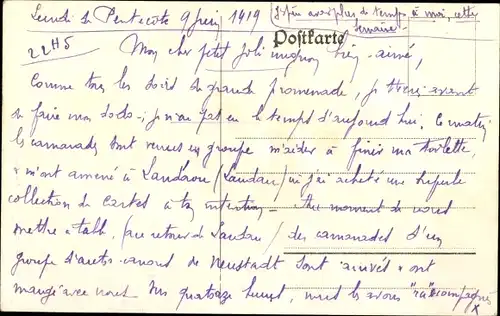 Lundi de Pentecôte 9 juin 1919
J'espère avoir plus de temps à moi, cette semaine.
22 H 5
Postkarte
Mon cher petit joli mignon bien-aimé,
Comme tous les soirs grande promenade, je t'écris avant
de faire mon dodo - je n'ai pas eu le temps d'aujourd'hui. Ce matin
les camarades sont venus en groupe m'aider à finir ma toilette
m'ont amené à Landaou (Landau) où j'ai acheté une superbe
collection de cartes à ton intention - Au moment de nous
mettre à table (au retour de Landau) des camarades d'un
groupe d'autos-canons de Neustadt sont arrivés ont
mangé avec nous. Vers quatorze heures, nous les avons "raccompagnés